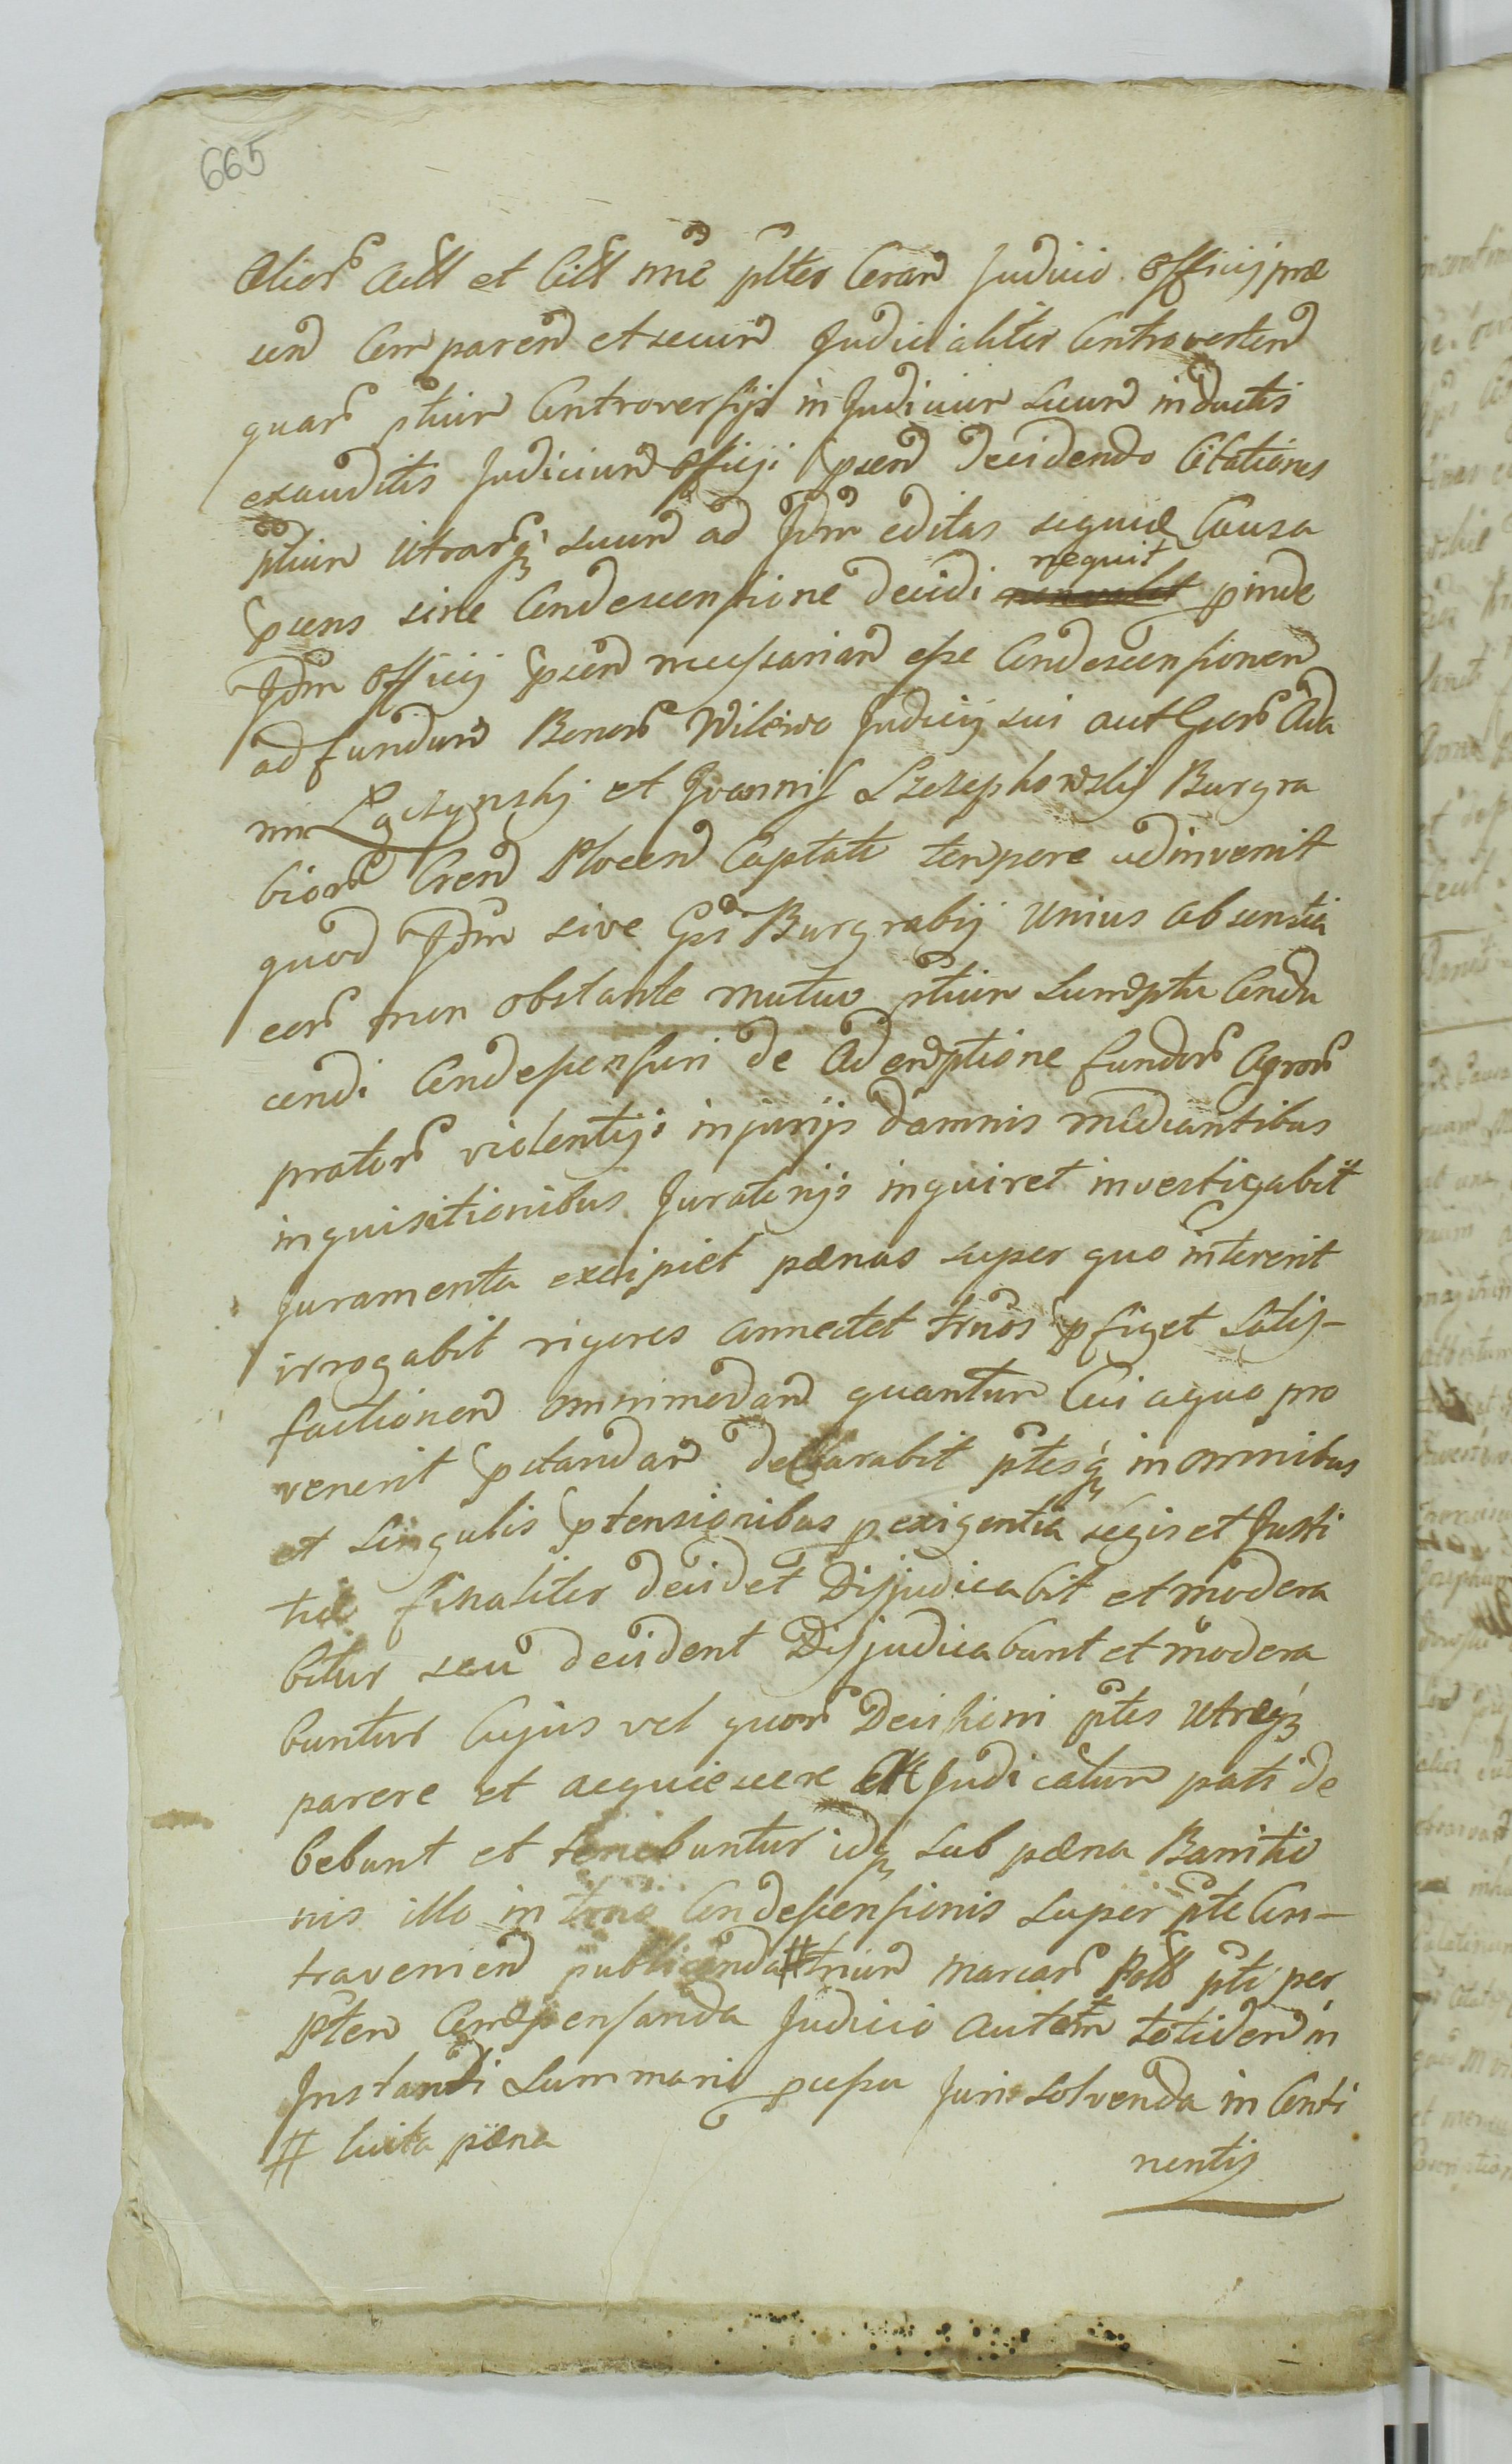 665
Alior Actt et Citt nne ptes Coram Judicio Officij præ
sen Comparen et secum Judicialiter Controverten
quar ptium Controversijs in Judicium secum inductis
exauditis Judicium Officij psens decidendo Citationes
ptium utrarq₃ secum ad Jdm editas siquidē Causa
psens sine Condescensione decidi nequit pinde
Jdm Officij psens necessariam esse Condescensionem
ad fundum Bonor Wilewo Judicij sui aut Gsor Ada
mi Łączynskj et Joannis Szczepkowskij Burgra
bior Cren Plocen Captato tempore adinvenit
quod Jdm sive Gsi Burgrabij unius absentia
eor non obstante mutuo ptium sumptu Condu
cendi Condescensuri de Ademptione fundor Agror
prator violentijs injurijs damnis mediantibus
inquisitionibus Juratorijs inquiret investigabit
Juramenta excipiet pænas super quo intererit
irrogabit rigores annectet trnos pfiget satis-
factionem omnimodam quantum Cui a quo pro
venerit pstandam declarabit ptesq₃ in omnibus
et singulis ptensionibus p exigentia legis et Justi
tiæ finaliter decidet Disjudicabit et modera
bitur seu decident Disjudicabunt et modera
buntur Cujus vel quor Decisioni ptes utræq₃
parere et acquiescere et Judicatum pati de
bebunt et tenebuntur idq₃ sub pæna Bannitio
nis illo in trno Condescensionis super pte Con-
travenien publicanda # trium marcar Poll pti per
ptem Compensanda Judicio autem totidem in
Instanti summario pcessu Juris solvenda in Conti
# luita pæna
nentis